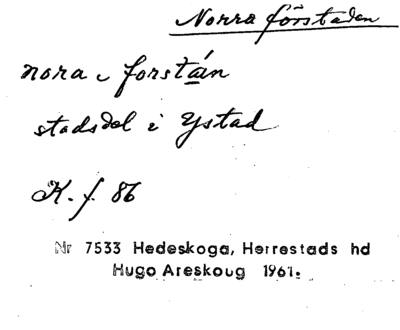 Norra förstaden
nora forstán
stadsdel i Ystad
K. f. 86
Nr 7533 Hedeskoga, Herrestads hd
Hugo Areskoug 1961.